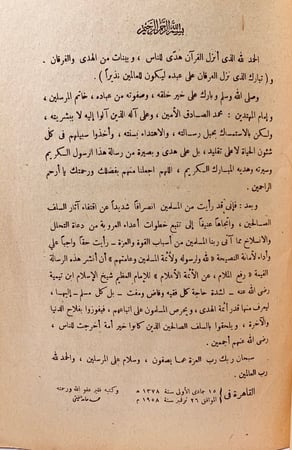 بسم الله الرحمن الرحيم
الحمد لله الذى أنزل القرآن هدى للناس ، وبينات من الهدى والفرقان .
( تبارك الذى نزل الفرقان على عبده ليكون للعالمين نذيراً ) .
وصلى الله وسلم وبارك على خير خلقه ، وصفوته من عباده ، خاتم المرسلين ،
وإمام المهتدين : محمد الصادق الأمين ، وعلى آله الذين آلوا إليه لا ببشريته ،
ولكن بالاستمساك بحبل رسالته ، والاهتداء بسنته ، وأخذوا سبيلهم فى كل
شئون الحياة لا على تقليد ، بل على هدى وبصيرة من رسالة هذا الرسول الكريم
وسيرته وهديه المبارك الكريم ، اللهم اجعلنا منهم بفضلك ورحمتك يا أرحم
الراحمين .
وبعد : فإنى قد رأيت من المسلمين انصرافاً شديداً عن اقتفاء آثار السلف
الصالحين ، واتجاهاً عنيفاً إلى تتبع خطوات أعداء العروبة من دعاة التحلل
والانسلاخ مما آتى ربنا المسلمين من أسباب القوة والعزة – رأيت حقاً واجباً على
وأداء لأمانة النصيحة « لله ولرسوله ولأئمة المسلمين وعامتهم » أن أنشر هذه الرسالة
القيمة « رفع الملام ، عن الأئمة الأعلام » للإمام العظيم شيخ الإسلام ابن تيمية
رضى الله عنه – لشدة حاجة كل فقيه وقاض ومفت – بل كل مسلم – إليها ،
ليعرف منها قدر أئمة الهدى ، ويحرص المسلمون على اتباعهم ، فيفوزوا بفلاح الدنيا
والآخرة ، ويلحقوا بالسلف الصالحين الذين كانوا خير أمة أخرجت للناس ،
رضى الله عنهم أجمعين .
سبحان ربك رب العزة عما يصفون ، وسلام على المرسلين ، والحمد لله
رب العالمين .
القاهرة فى
١٥ جمادى الأولى سنة ١٣٧٨ هـ
الموافق ٢٦ نوفمبر سنة ١٩٥٨ م
وكتبه فقير عفو الله ورحمته
محمد حامد الفقى